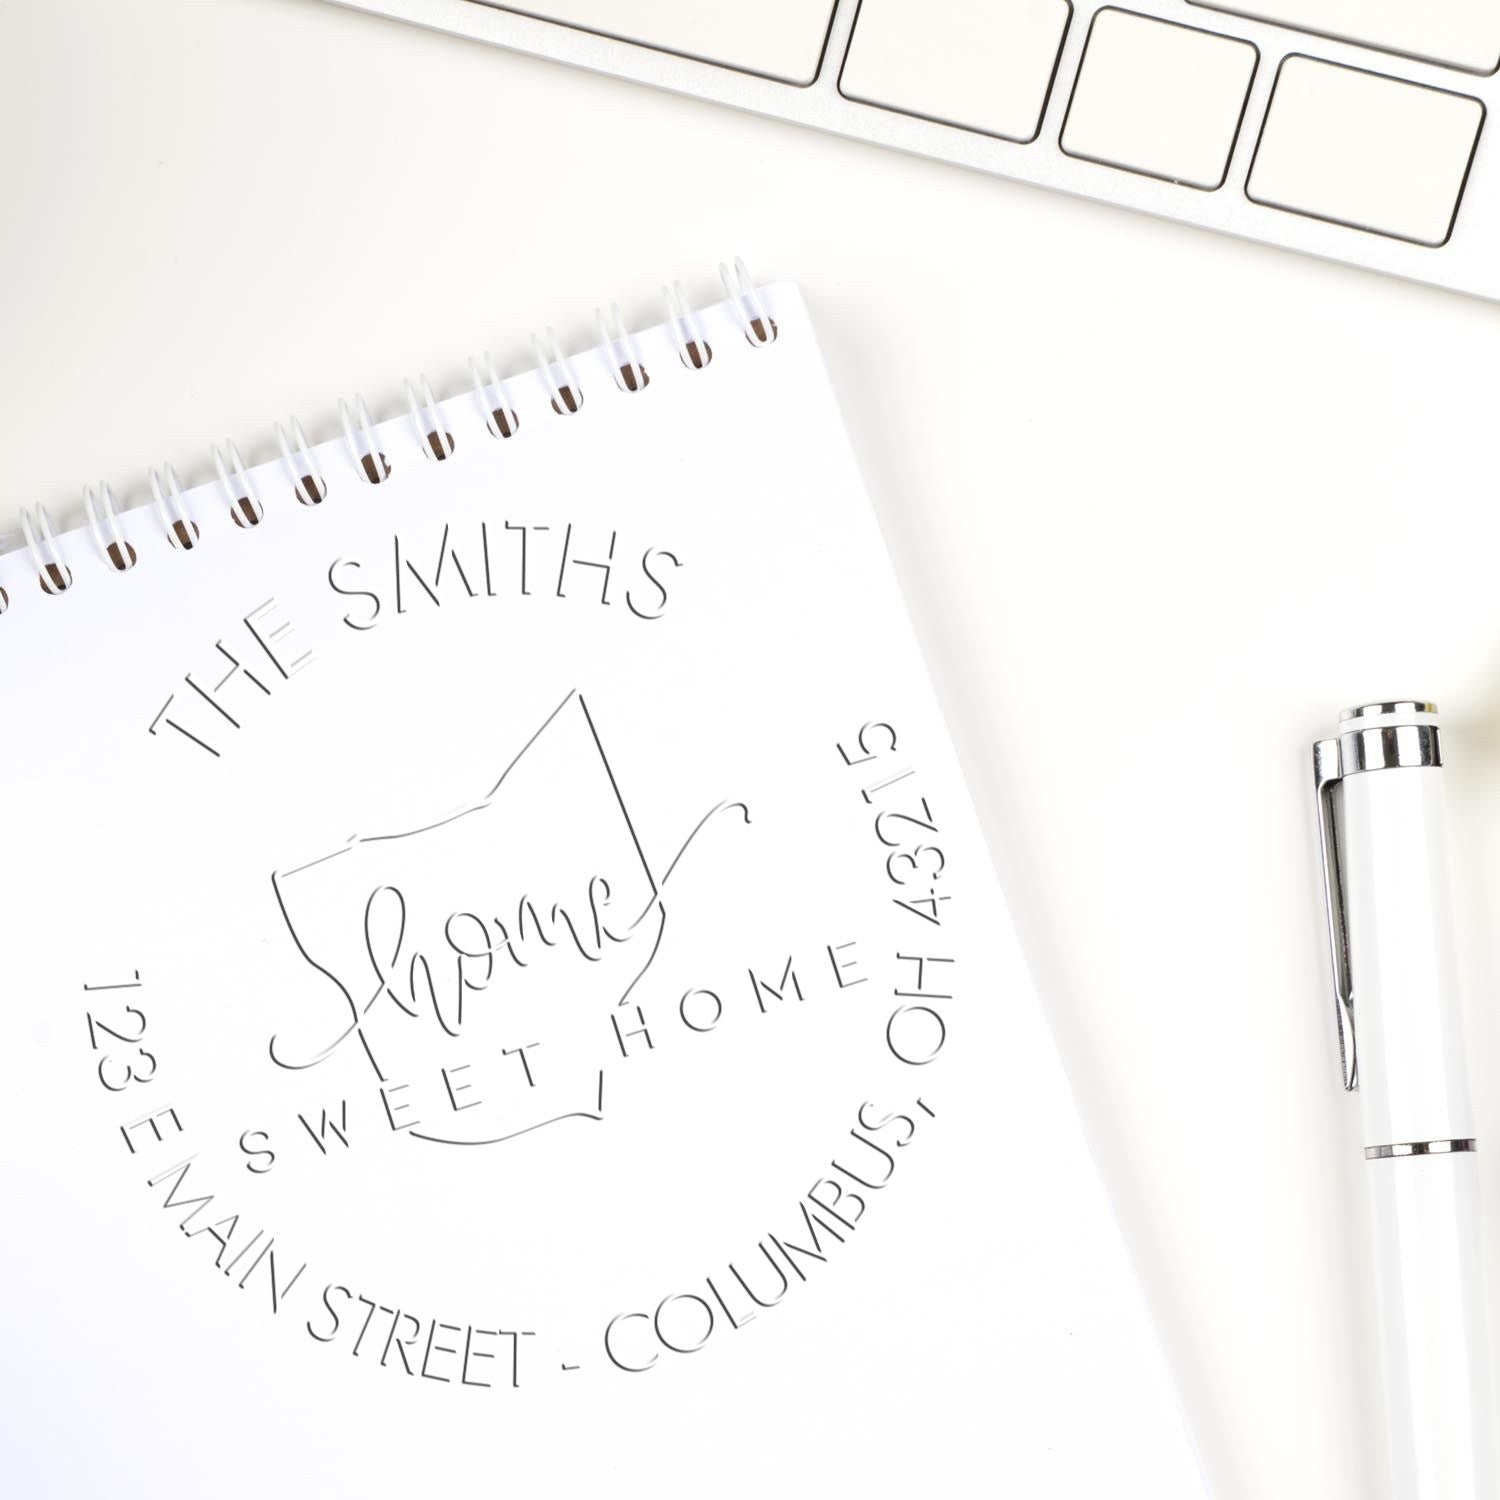 THE SMITHS
home
SWEET HOME
123 E MAIN STREET - COLUMBUS, OH 43215